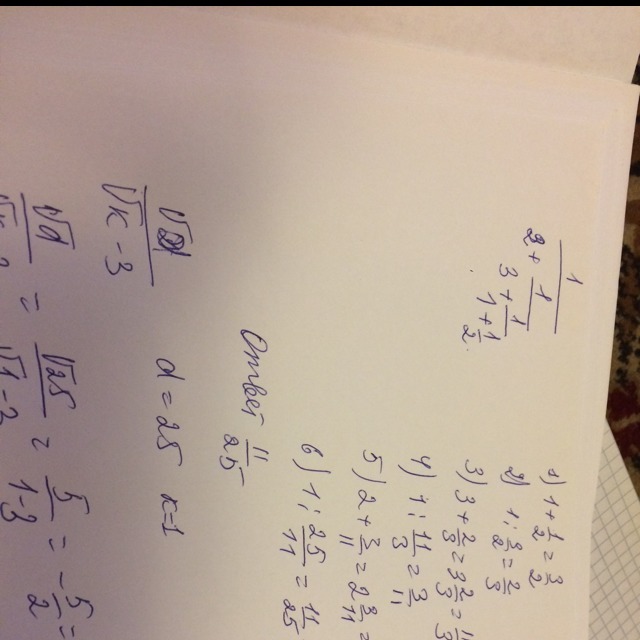 1
2 + 1
3 + 1
1 + 1/2
1) 1 + 1/2 = 3/2
2) 1 : 3/2 = 2/3
3) 3 + 2/3 = 3 2/3 = 11/3
4) 1 : 11/3 = 3/11
5) 2 + 3/11 = 2 3/11 =
6) 1 : 25/11 = 11/25
Ответ 11/25
√d/√к - 3 d = 25 к=1
√d/√к - 3 = √25/√1 - 3 = 5/1-3 = -5/2 =